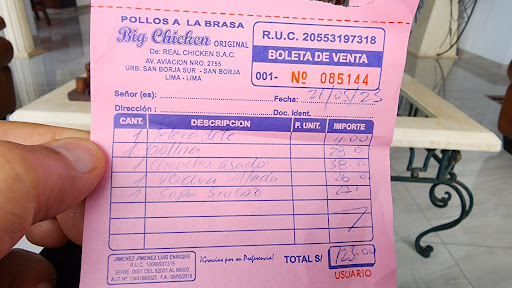 POLLOS A LA BRASA
Big Chicken ORIGINAL
De: REAL CHICKEN S.A.C.
AV. AVIACION NRO. 2755
URB. SAN BORJA SUR - SAN BORJA
LIMA - LIMA
R.U.C. 20553197318
BOLETA DE VENTA
001- Nº 085144
Señor (es):
Fecha: 21/05/23
Dirección :
Doc. Ident.
CANT. DESCRIPCION P. UNIT. IMPORTE
1
1
1 asado
1 26.00
1 Sopa 22
JIMENEZ JIMENEZ LUIS ENRIQUE
R.U.C. 10086937315
SERIE: 0001 DEL 82001 AL 88000
¡Gracias por su Preferencia!
TOTAL S/ 123.00
USUARIO